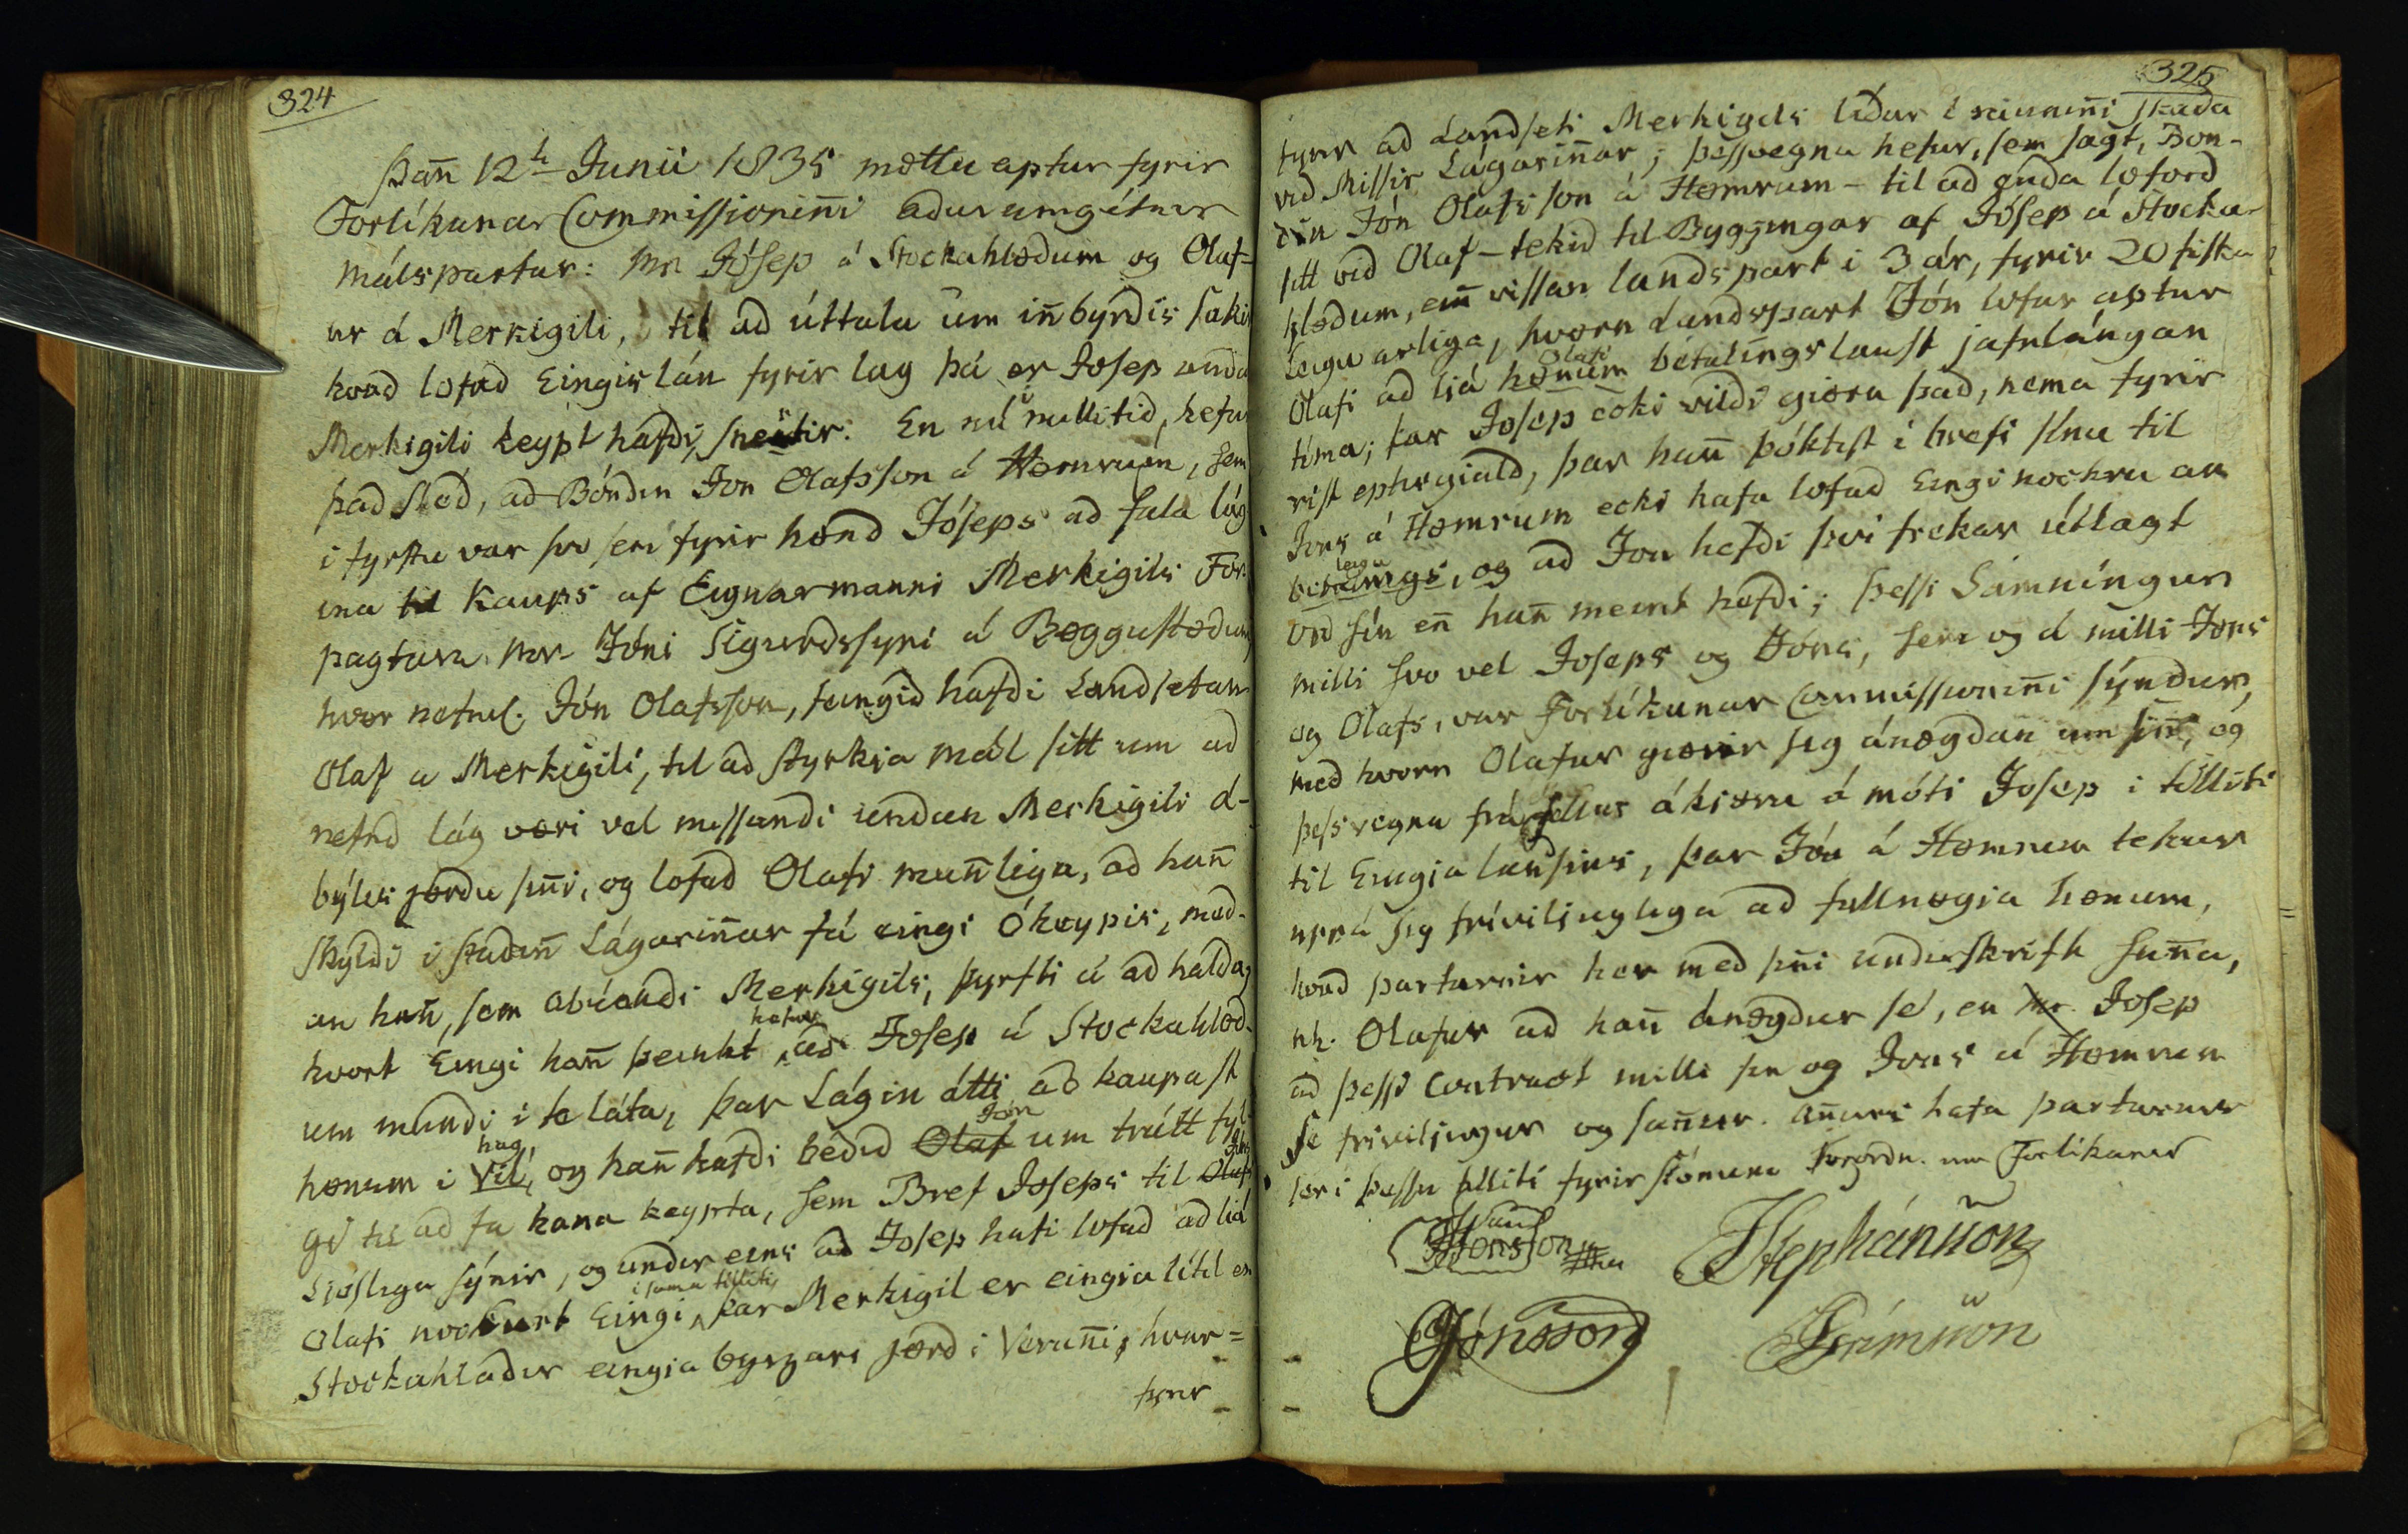 324
Þan̄ 12t Junii 1835 mættu aptur fyrir
Forlíkunar Commissionin̄i áðurumgétner
málspartar: Mr Jósep á Stockahlöðum og Olaf=
ur á Merkigili, til að úttala um in̄byrðis sakir
hvað lofað Eingis lán fyrir lag þá er Josep undan
Merkigili keypt hafði, snertir. En nú í millitið, hefur
það skéð, að Bóndin Jon Olafsson á Hömrum, sem
i fyrstu var svo sem fyrir hönd Jóseps að fala lág
ina til Kaups af Eignarmanni Merkigils For-
pagtara Mr Jóni Sigurðssyni á Böggustöðum,
hvör nefnd. Jón Olafsson, fengið hafði Landsetan
Olaf a Merkigili, til að styrkja mál sitt um að
nefnd lág væri vel missandi undan Merkigili á-
býlis jörðu sin̄i, og lofað Olafi mun̄liga, að han̄
skyldi i staðin̄ Lágarin̄ar fá eingi ókeypis, með-
an han̄, sem abúandi Merkigils, þyrfti á að halda,
hvört Eingi han̄ þeinkt hafur, að Josep á Stockahlöð-
um mundi i té láta, þar Lágin átti að kaupast
hönum i vil, hag og han̄ hafði beðið Olaf Jón um trútt fyl-
gi til að fá hana keypta, sem Bref Joseps til Olafs Jóns
Ljósliga sýnir, og undir eins að Josep hafi lofað að liá
Olafi nockurt Eingi, i sama tilliti, þar Merkigil er eingia litil en
Stockahlaðir eingia byrgari jörð i Verun̄i; hvar=
fyrir
325
fyrir að Landseti Merkigils liður i raunin̄i skaða
við Missir Lágarin̄ar; þessvegna hefur, sem sagt, Bon-
din Jón Olafsson á Hömrum - til að enda loforð
sitt við Olaf - tekið til Byggingar af Jósep á Stocka-
hlöðum, ein̄ vissan landspart i 3 ár, fyrir 20 fiska
Leigu arliga, hvörn Landspart Jón lofar aptur
Olafi að ljá hönum Olafi betalingslaust jafnlángan
tima; þar Josep ecki vildi giöra það, nema fyrir
vist epter giald, þar han̄ þóktist i brefi sínu til
Jons á Hömrum ecki hafa lofað Eingi nockru an
betalings, leigu og að Jon hefði því frekar útlagt
orð sín en̄ han̄ meint hafði; þessi Samningur
milli svo vel Joseps og Jóns, sem og á milli Jons
og Olafs, var Forlíkunar Commissionin̄i sýndur,
með hvörn Olafur giörir sig ánægðan um sin̄, og
þessvegna frá fellur ákiæru á móti Josep i tilliti
til Eingia lansins, þar Jón á Hömrum tekur
uppá sig fríviljuglega að fullnægia hönum,
hvað partarnir hér með sin̄i underskrift san̄a,
nl. Olafur að han̄ ánægdur sé, en Mr. Josep
að þessi contract milli sin og Jons á Hömrum
sé friviljugur og san̄ur. An̄ars hafa partarnir
hér i þessu tilliti fyrir sömu Forordn. um Forlíkanir
JStephánsson
Jónsson
Grímsson